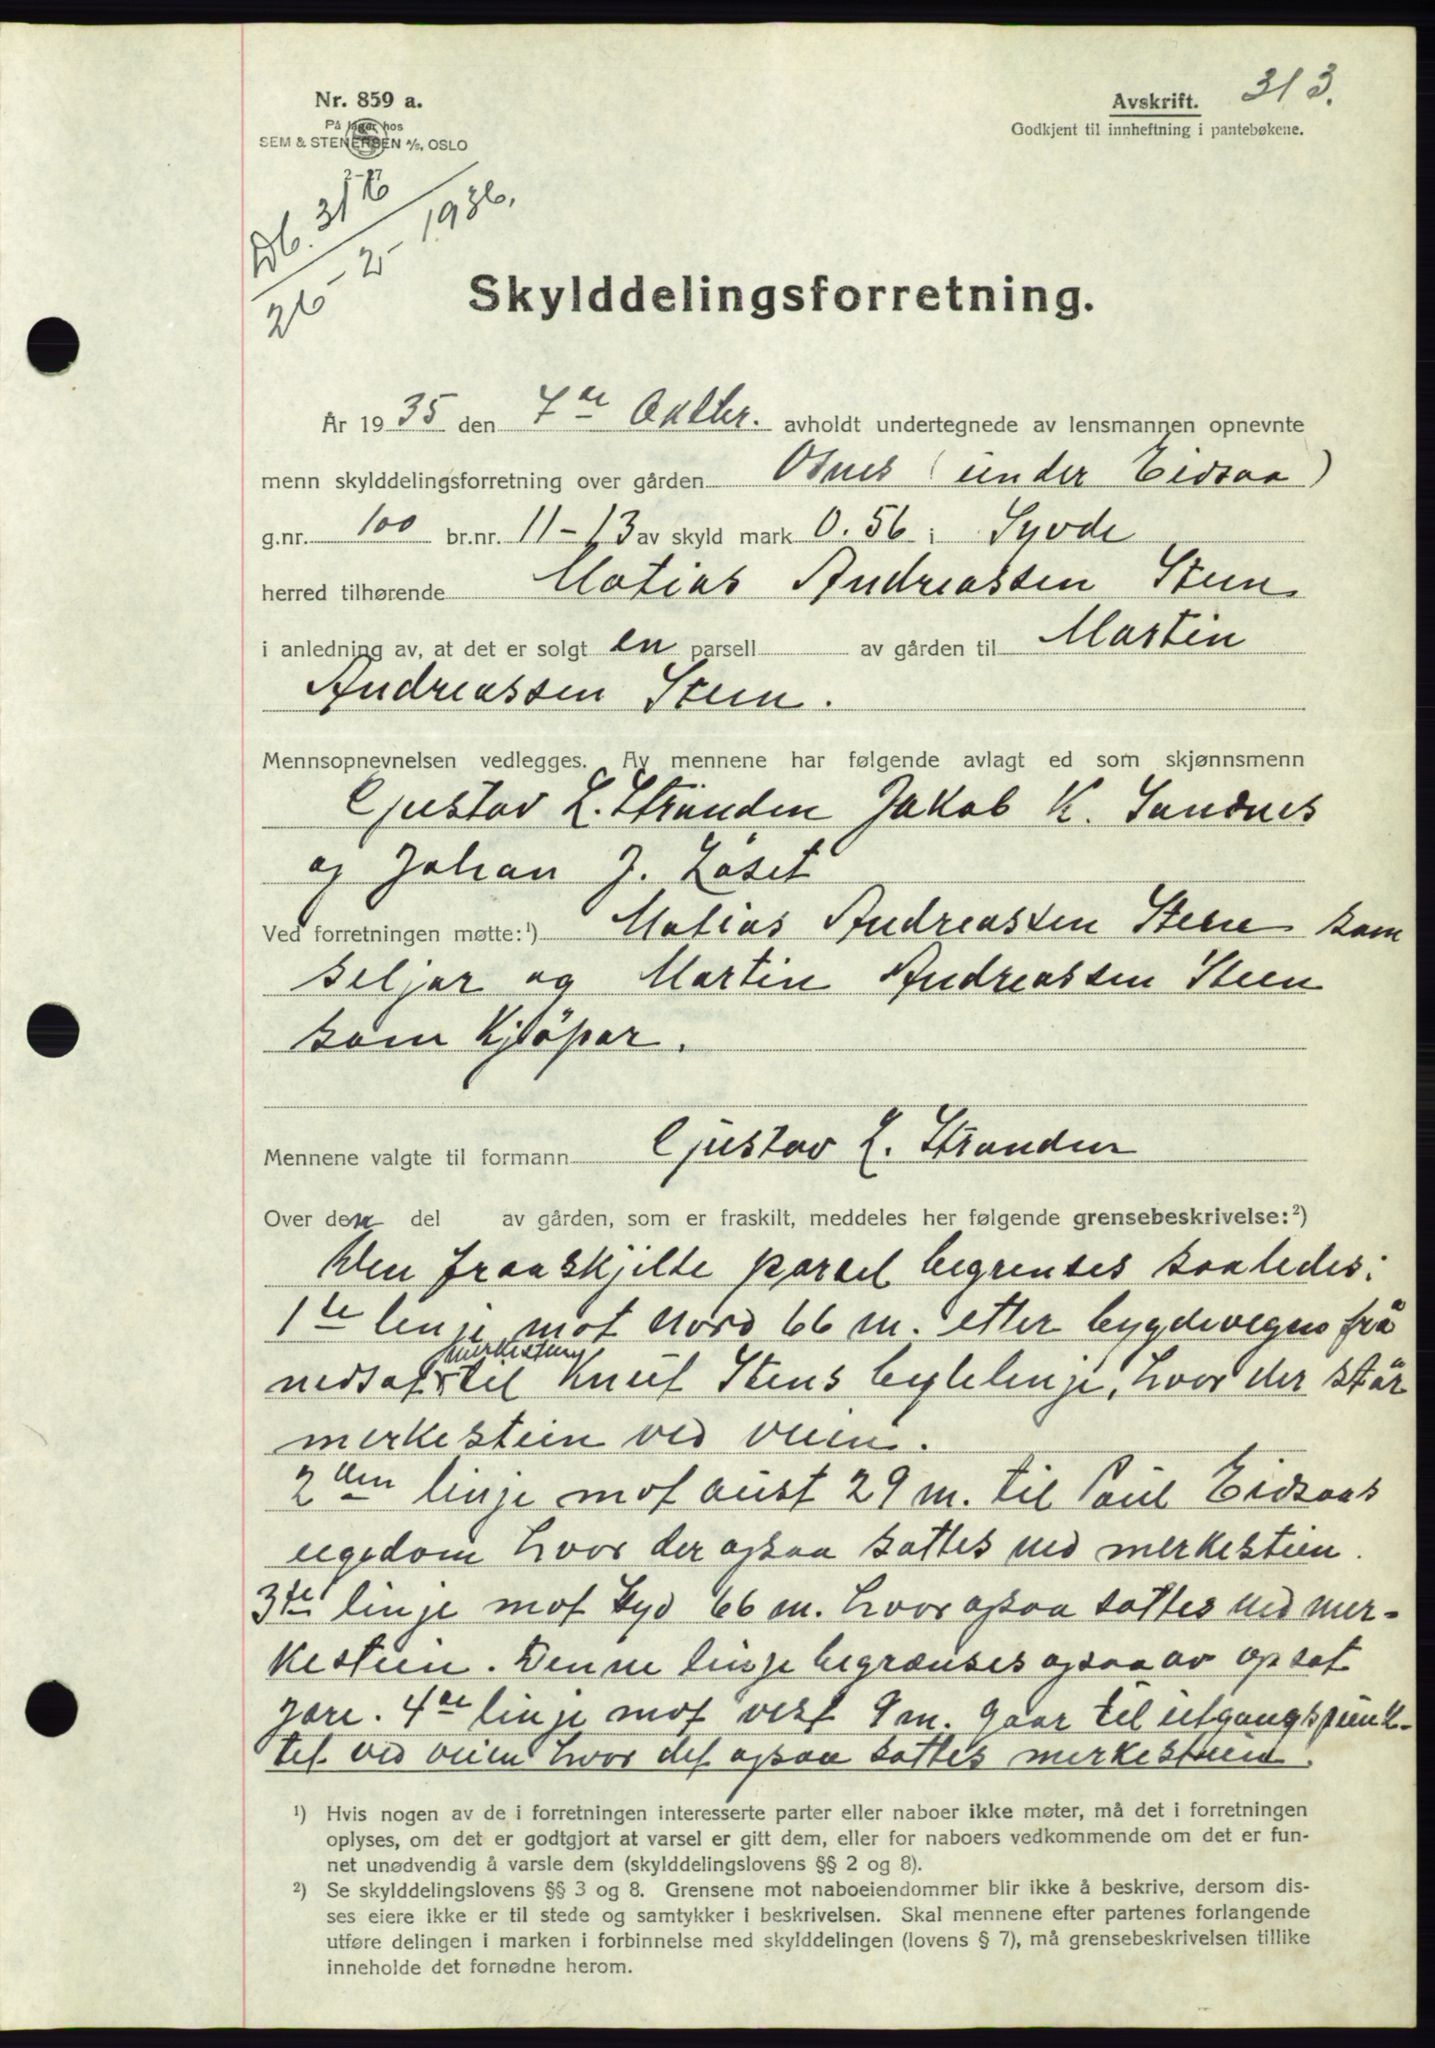 313.
Nr. 859 a.
På lager hos
SEM & STENERSEN A/S, OSLO
2-37
Avskrift.
Godkjent til innheftning i pantebøkene.
Db. 316
26-2-1936.
Skylddelingsforretning.
År 1935 den 7de Oktbr. avholdt undertegnede av lensmannen opnevnte
menn skylddelingsforretning over gården Osnes (under Eidsaa)
g.nr. 100 br.nr. 11-13 av skyld mark 0.56 i Syvde
herred tilhørende Matias Andreassen Steen
i anledning av, at det er solgt en parsell av gården til Martin
Andreassen Steen.
Mennsopnevnelsen vedlegges. Av mennene har følgende avlagt ed som skjønnsmenn
Gjustav L. Stranden Jakob K. Sandnes
og Johan J. Löset
Ved forretningen møtte:¹) Matias Andreassen Steen som
seljar og Martin Andreassen Steen
som Kjöpar.
Mennene valgte til formann Gjustav L. Stranden
Over den del av gården, som er fraskilt, meddeles her følgende grensebeskrivelse:²)
Den fraaskjilte parsel begrenses saaledes:
1te linje mot Nord 66 m. etter bygdevegen frå
merkestein
nedsat til Knut Stens bytelinje, hvor der står
merkestein ved veien.
2den linje mot aust 29 m. til Paul Eidsaas
eigedom hvor der ogsaa sattes ned merkestein.
3de linje mot Syd 66 m. hvor ogsaa sattes ned mer-
kestein. Denne linje begrænses ogsaa av opsat
jare. 4de linje mot vest 9 m. gaar til utgangspunk-
tet ved veien hvor det ogsaa sattes merkestein.
¹) Hvis nogen av de i forretningen interesserte parter eller naboer ikke møter, må det i forretningen
oplyses, om det er godtgjort at varsel er gitt dem, eller for naboers vedkommende om det er fun-
net unødvendig å varsle dem (skylddelingslovens §§ 2 og 8).
²) Se skylddelingslovens §§ 3 og 8. Grensene mot naboeiendommer blir ikke å beskrive, dersom dis-
ses eiere ikke er til stede og samtykker i beskrivelsen. Skal mennene efter partenes forlangende
utføre delingen i marken i forbinnelse med skylddelingen (lovens § 7), må grensebeskrivelsen tillike
inneholde det fornødne herom.